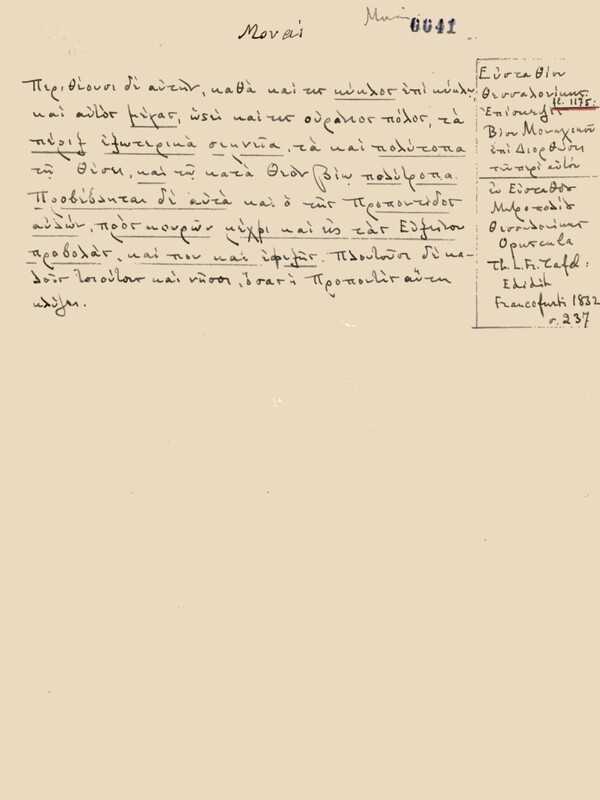 Μοναί
0041
Περιθέουσι δὲ αὐτὴν, καθὰ καί τις κύκλος ἐπὶ κύκλῳ
καὶ αὐτὸς μέγας, ὡσεὶ καί τις οὐράνιος πόλος, τὰ
πέριξ ἐξωτερικὰ σκηνεῖα, τὰ καὶ πολύτοπα
τῇ θέσει, καὶ τῷ κατὰ Θεὸν βίῳ πολύτροπα.
Προβέβληται δὲ αὐτὰ καὶ ὁ τῆς Προποντίδος
αὐλών, πρὸς μέχρι καὶ εἰς τὰς Εὐξείνου
προβολὰς, καὶ που καὶ ἐφεξῆς. Πλουτοῦσι δὲ κα-
λοὺς τοιούτους καὶ νῆσοι, ὅσας ἡ Προποντὶς αὕτη
κλύζει.
Εὐσταθίου
Θεσσαλονίκης
fl. 1175.
Ἐπίσκεψις
Βίου Μοναχικοῦ
ἐπὶ Διορθώσει
τῶν περὶ αὐτόν
ἐν Εὐσταθίου
Μητροπολίτου
Θεσσαλονίκης
Opuscula
Th. L. Fr. Tafel:
Edidit
Francofurti 1832
σ. 237